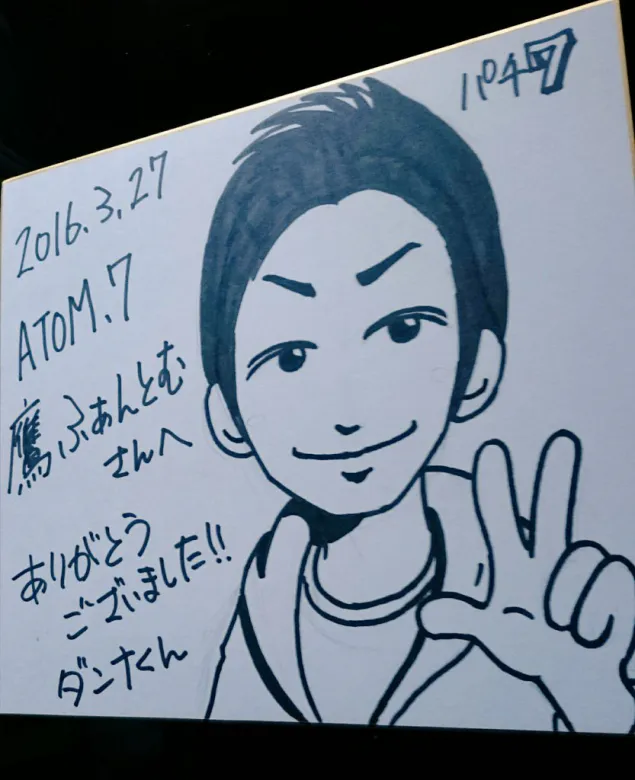 パチ7
2016.3.27
ATOM.7
鷹ふぁんとむ
さんへ
ありがとう
ございました!!
ダンナくん